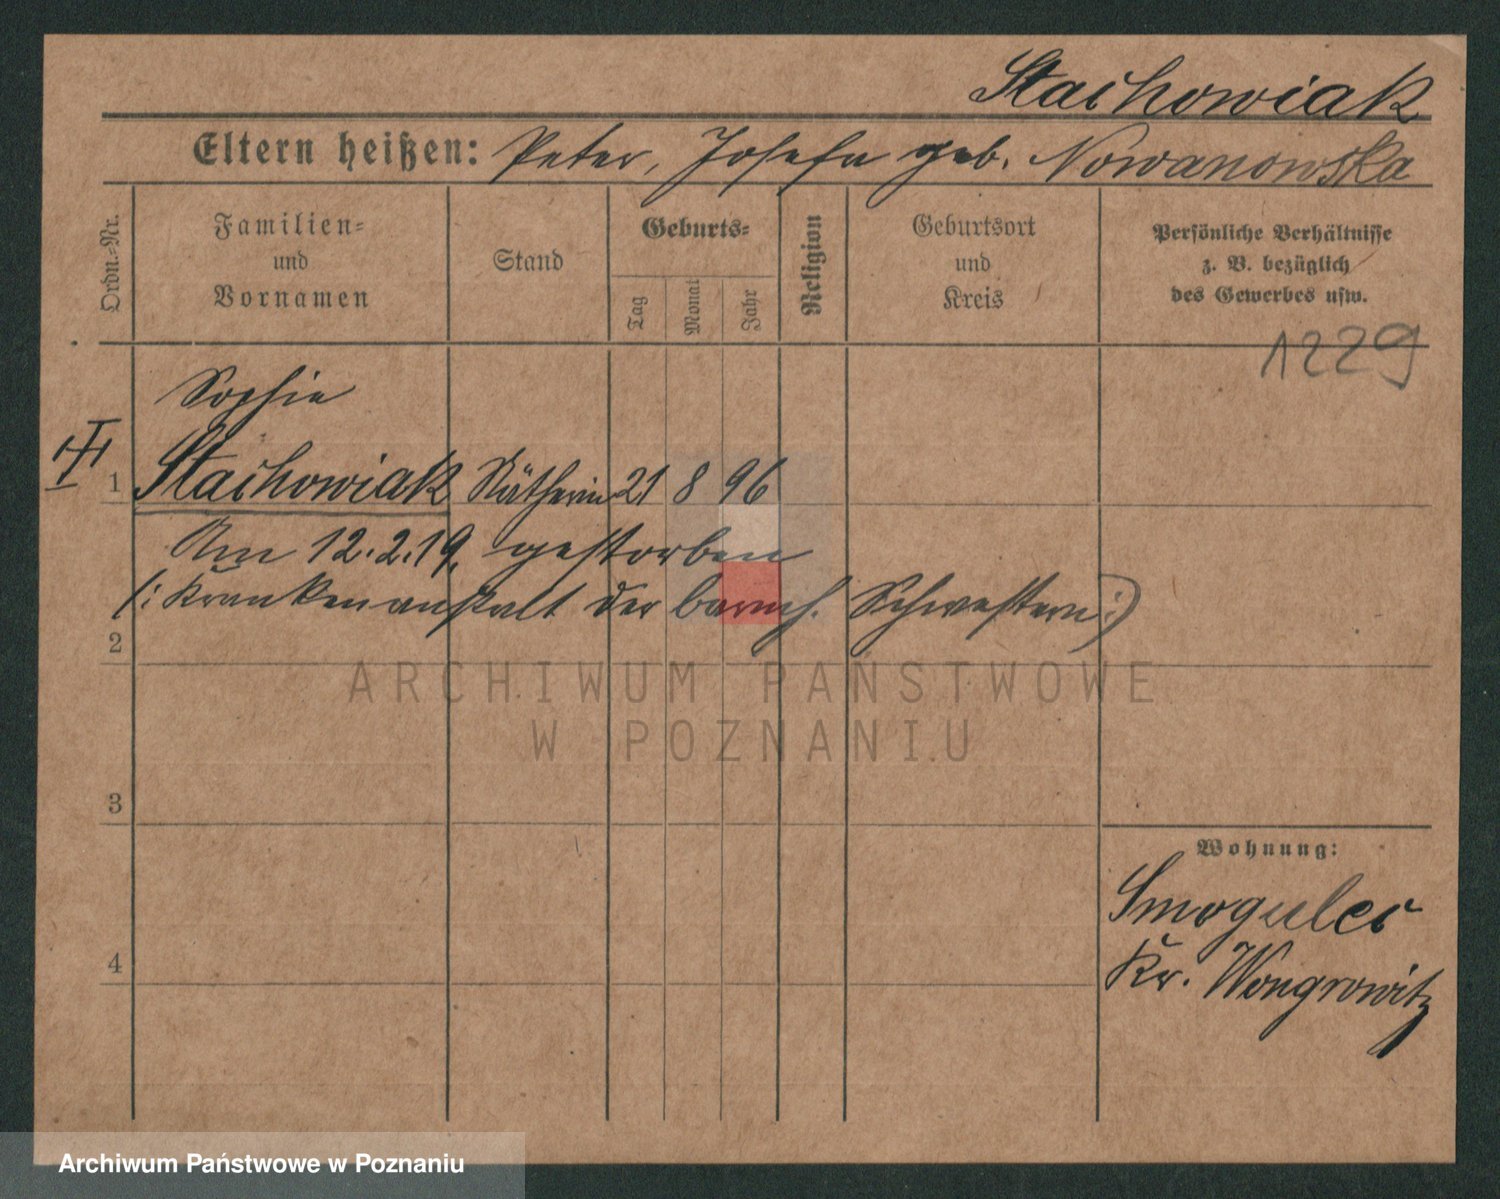 Stachowiak
Eltern heißen: Peter, Josefa geb. Nowanowska
Ordn.-Nr.
Familien-
und
Vornamen
Stand
Geburts-
Tag
Monat
Jahr
Religion
Geburtsort
und
Kreis
Persönliche Verhältnisse
z. B. bezüglich
des Gewerbes usw.
1229
Sophie
1 Stachowiak Nätherin 21 8 96
Am 12.2.19. gestorben
(: Krankenanstalt der barmh. Schwestern :)
2
ARCHIWUM PAŃSTWOWE
W POZNANIU
3
Wohnung:
Smogulec
4
Kr. Wongrowitz
Archiwum Państwowe w Poznaniu